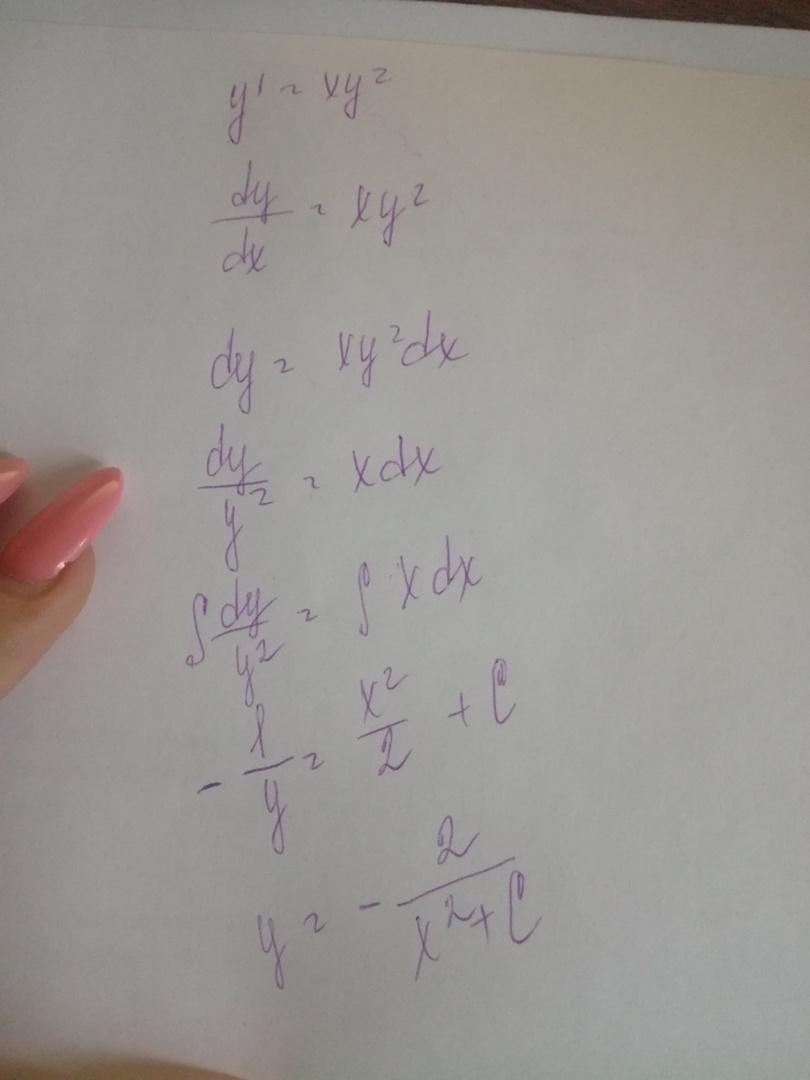 y' = xy²
dy/dx = xy²
dy = xy²dx
dy/y² = xdx
∫dy/y² = ∫xdx
-1/y = x²/2 + C
y = -2/(x²+C)